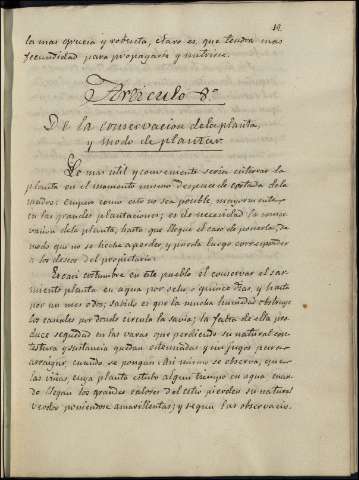 la mas espesa y robusta, claro es, que tendrá mas
fecundidad para propagarse y nutrirse.
Articulo 8.º
De la conservacion dela planta,
y modo de plantar.
Lo mas util y conveniente seria enterrar la
planta en el momento mismo despues de cortada dela
madre: empero como esto no sea posible, mayormente
en las grandes plantaciones; es de necesidad la conser-
vacion dela planta, hasta que llegue el caso de ponerla, de
modo que no se heche aperder, y pueda luego corresponder
à los deseos del propietario.
Es casi costumbre en este pueblo el conservar el sar-
miento planta en agua por ocho o quince dias, y hasta
por un mes
sabido es que la mucha humedad obstruye
los canales por donde circula la savia; la falta de ella pro-
duce sequedad en las varas que perdiendo su natural con-
testura y sustancia quedan estenuadas y sin jugos para
arraigar, cuando se pongan. Asi mismo se observa, que
las viñas, cuya planta estubo algun tiempo en agua cuan-
do llegan los grandes calores del estio pierden su natural
verdor poniendose amarillentas; y segun las observacio-